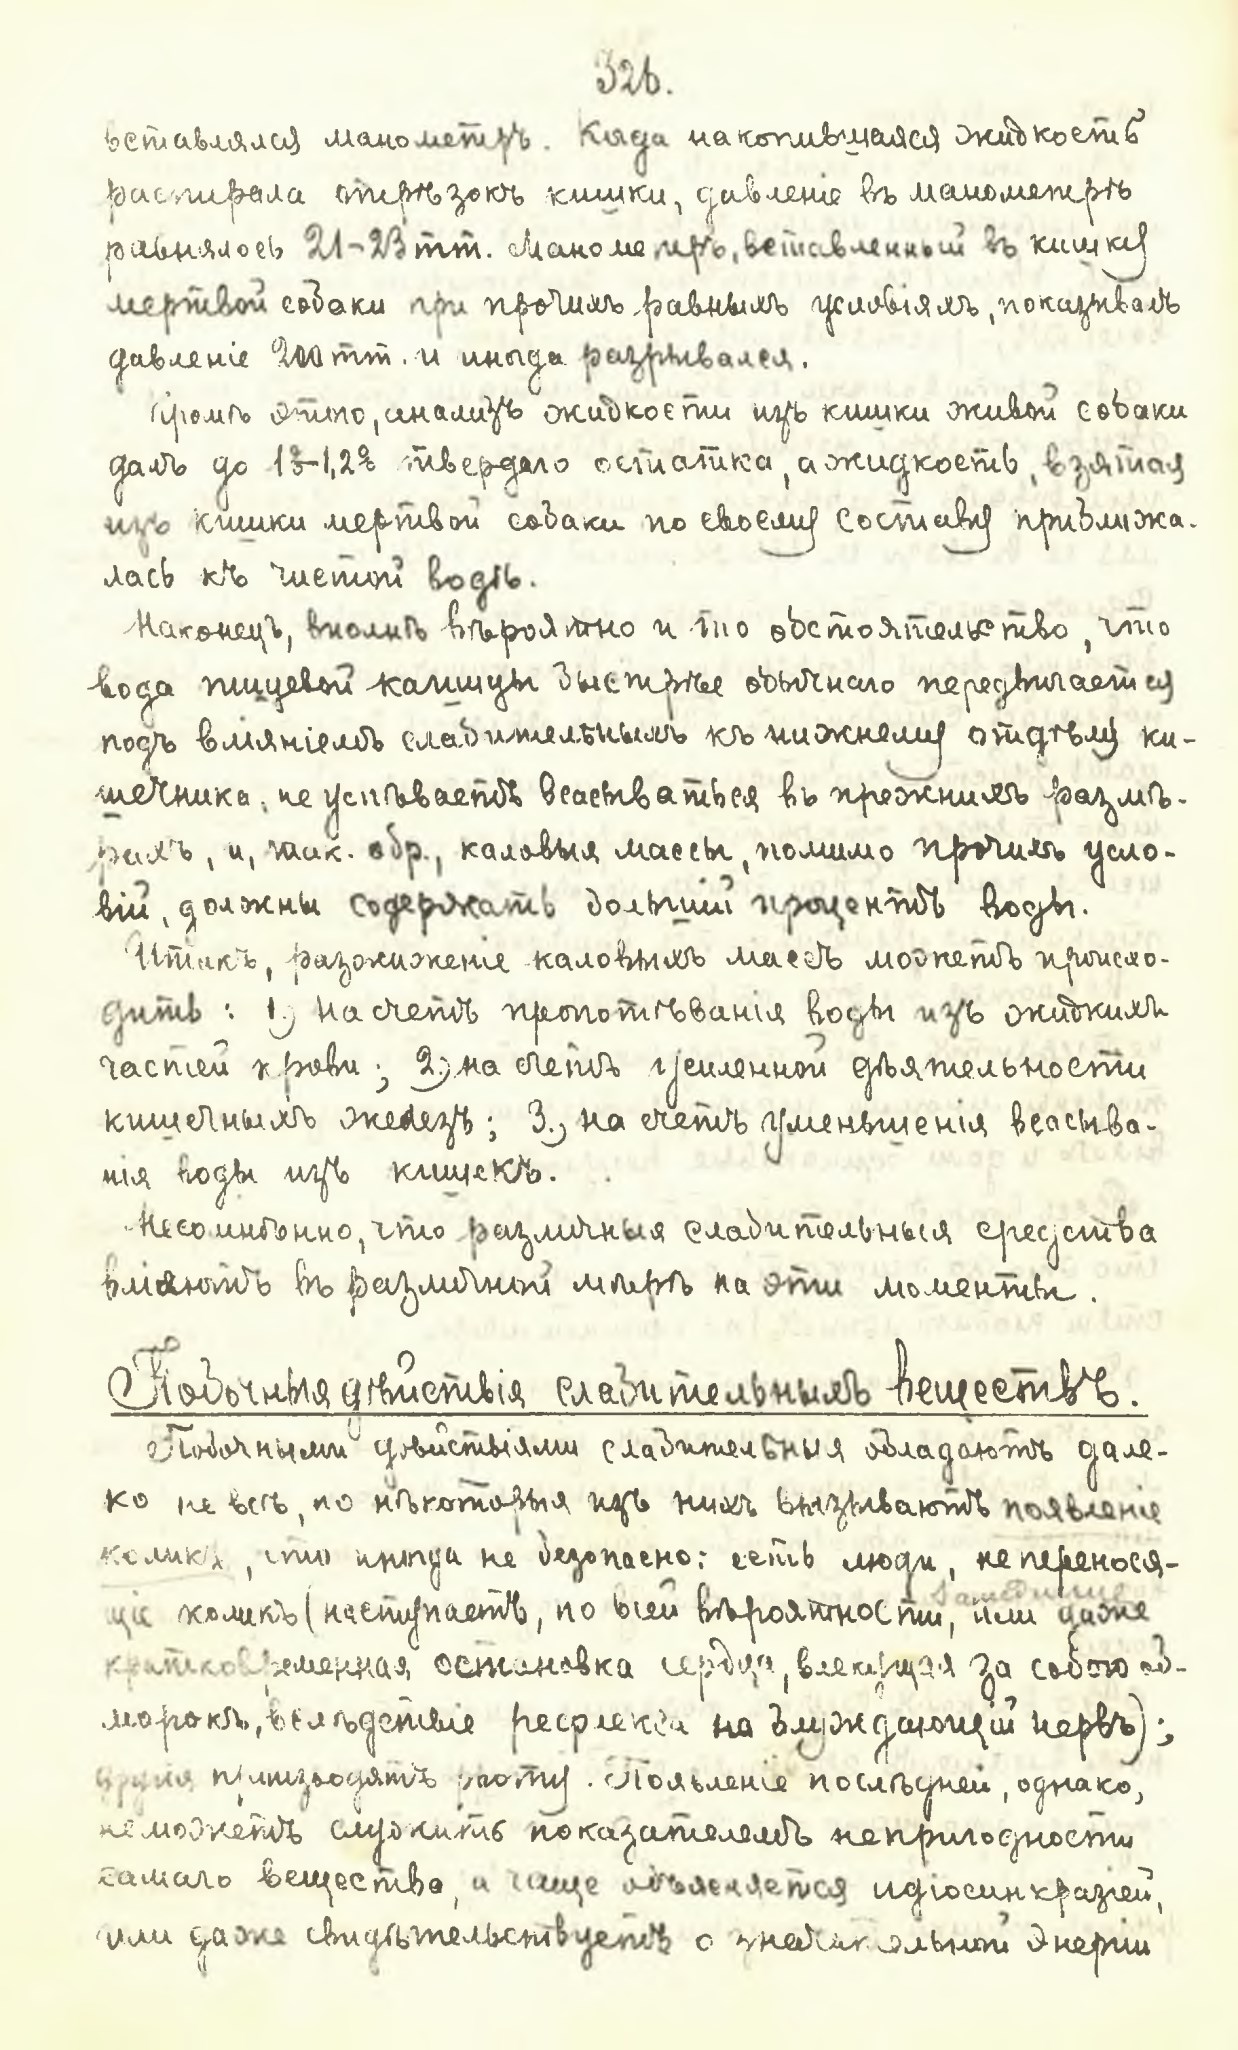 326.
вставлялся манометръ. Когда накопившаяся жидкость
распирала отрѣзокъ кишки, давленіе въ манометрѣ
равнялось 21-23 mm. Манометръ, вставленный въ кишку
мертвой собаки при прочихъ равныхъ условіяхъ, показывалъ
давленіе 200 mm. и иногда разрывался.
Кромѣ этого, анализъ жидкости изъ кишки живой собаки
далъ до 1%-1,2% твердаго остатка, а жидкость, взятая
изъ кишки мертвой собаки по своему составу приближа-
лась къ чистой водѣ.
Наконецъ, вполнѣ вѣроятно и то обстоятельство, что
вода пищевой кашицы быстрѣе обычнаго передвигается
подъ вліяніемъ слабительныхъ къ нижнему отдѣлу ки-
шечника, не успѣваетъ всасываться въ прежнихъ размѣ-
рахъ, и, так. обр., каловыя массы, помимо прочихъ усло-
вій, должны содержать большій процентъ воды.
Итакъ, разжиженіе каловыхъ массъ можетъ происхо-
дить: 1.) на счетъ пропотѣванія воды изъ жидкихъ
частей крови; 2.) на счетъ усиленной дѣятельности
кишечныхъ железъ; 3.) на счетъ уменьшенія всасыва-
нія воды изъ кишекъ.
Несомнѣнно, что различныя слабительныя средства
вліяютъ въ различной мѣрѣ на эти моменты.
Побочныя дѣйствія слабительныхъ веществъ.
Побочными дѣйствіями слабительныя обладаютъ дале-
ко не всѣ, но нѣкоторыя изъ нихъ вызываютъ появленіе
коликъ, что иногда не безопасно: есть люди, не перенося-
щіе коликъ (наступаетъ, по всей вѣроятности, или даже
кратковременная остановка сердца, влекущая за собою об-
морокъ, вслѣдствіе рефлекса на блуждающій нервъ);
другія производятъ рвоту. Появленіе послѣдней, однако,
не можетъ служить показателемъ непригодности
самаго вещества, а чаще объясняется идіосинкразіей,
или даже свидѣтельствуетъ о значительной энергіи